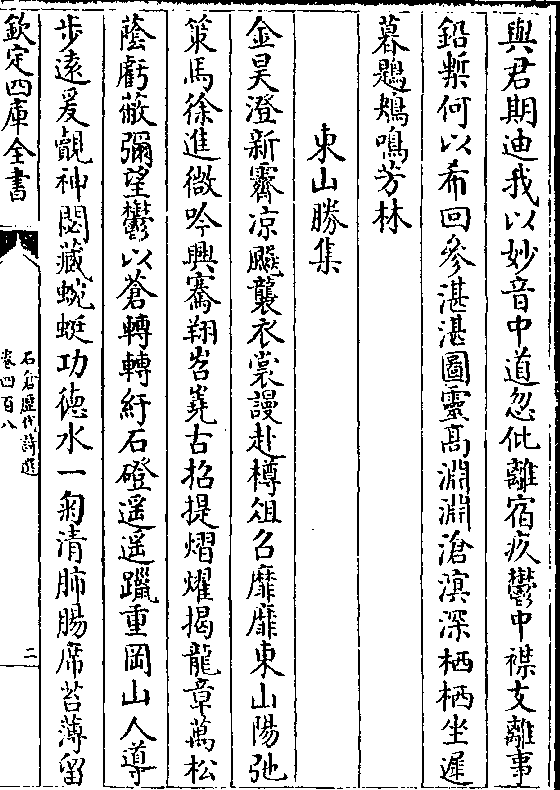 與君期迪我以妙音中道忽仳離宿疚鬱中襟支離事
鉛槧何以希回參湛湛圖靈高淵淵滄溟深栖栖坐遲
暮鶗鴂鳴芳林
東山勝集
金昊澄新霽凉飇襲衣裳謾赴樽俎召靡靡東山陽弛
策馬徐進微吟興騫翔岧嶤古招提熠燿揭龍章萬松
蔭虧蔽彌望鬱以蒼轉轉紆石磴遥遥躐重岡山人導
步遠爰覿神閟藏蜿蜒功德水一匊清肺腸席苔薄留
欽定四庫全書
石倉歷代詩選
卷四百八
二